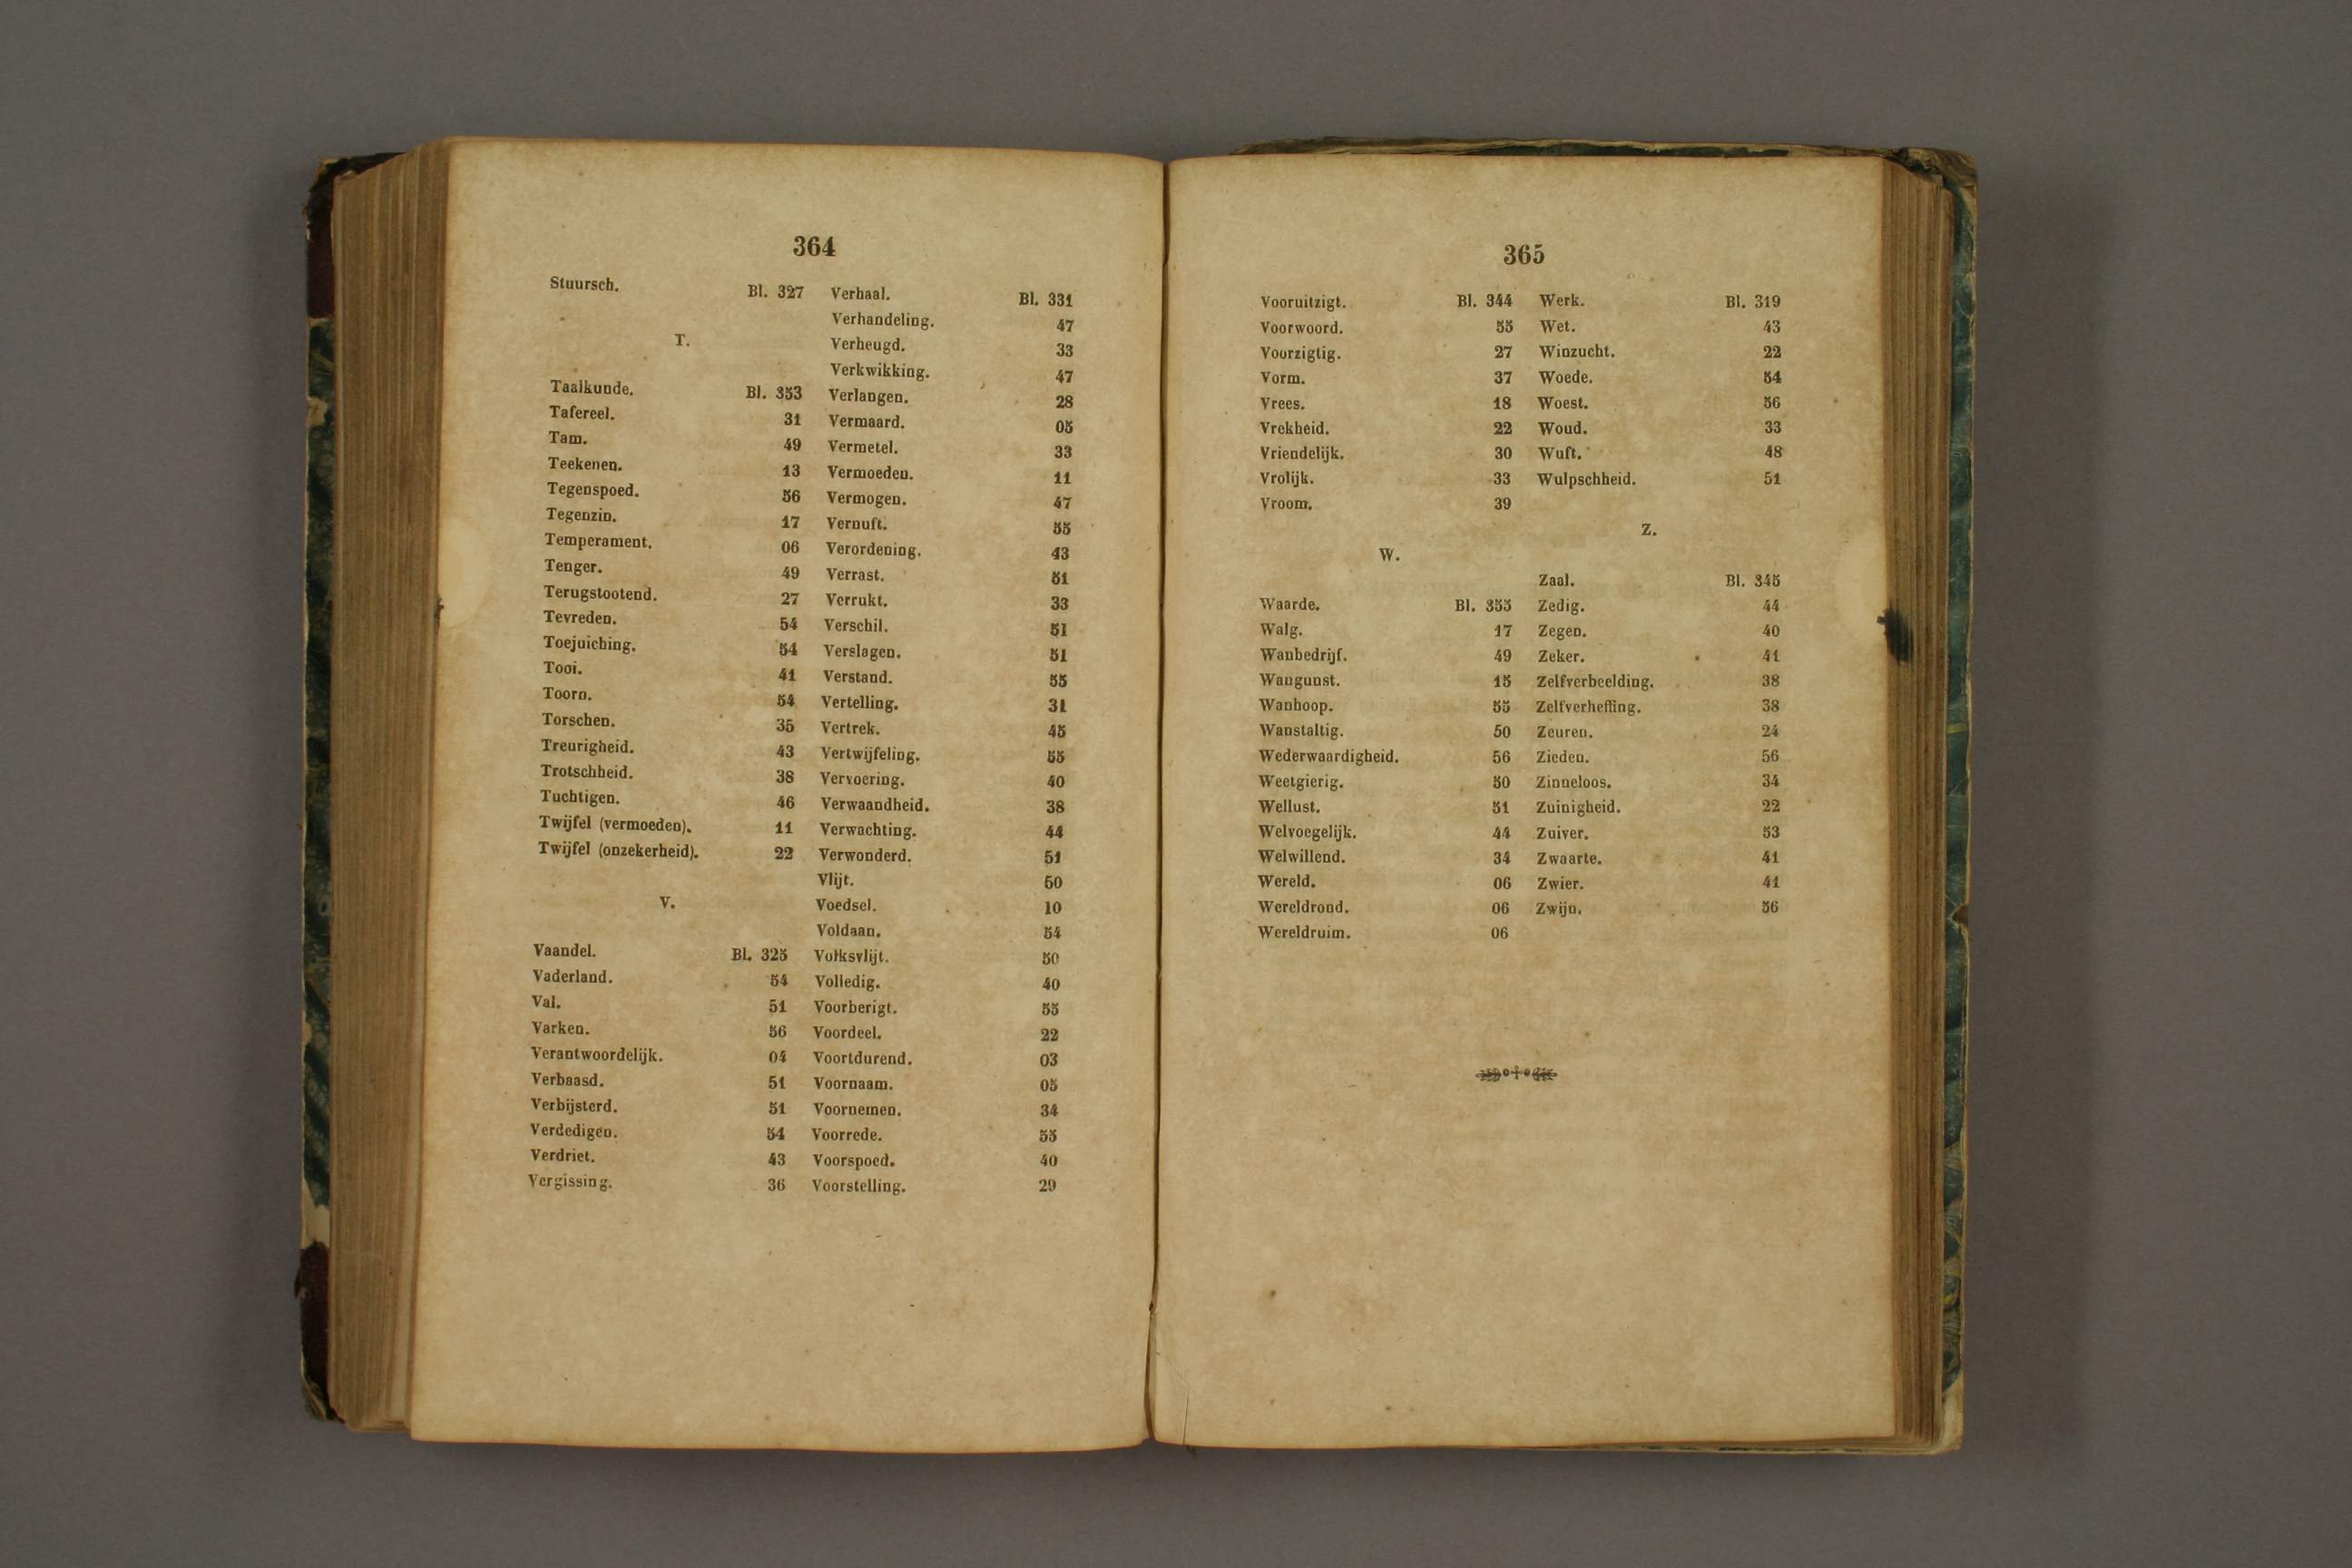 364
Stuursch. Bl. 327
T.
Taalkunde. Bl. 353
Tafereel. 31
Tam. 49
Teekenen. 13
Tegenspoed. 56
Tegenzin. 17
Temperament. 06
Tenger. 49
Terugstootend. 27
Tevreden. 54
Toejuiching. 54
Tooi. 41
Toorn. 54
Torschen. 35
Treurigheid. 43
Trotschheid. 38
Tuchtigen. 46
Twijfel (vermoeden). 11
Twijfel (onzekerheid). 22
V.
Vaandel. Bl. 325
Vaderland. 54
Val. 51
Varken. 56
Verantwoordelijk. 04
Verbaasd. 51
Verbijsterd. 51
Verdedigen. 54
Verdriet. 43
Vergissing. 36
Verhaal. Bl. 331
Verhandeling. 47
Verheugd. 33
Verkwikking. 47
Verlangen. 28
Vermaard. 05
Vermetel. 33
Vermoeden. 11
Vermogen. 47
Vernuft. 55
Verordening. 43
Verrast. 51
Verrukt. 33
Verschil. 51
Verslagen. 51
Verstand. 55
Vertelling. 31
Vertrek. 45
Vertwijfeling. 55
Vervoering. 40
Verwaandheid. 38
Verwachting. 44
Verwonderd. 51
Vlijt. 50
Voedsel. 10
Voldaan. 54
Volksvlijt. 50
Volledig. 40
Voorberigt. 55
Voordeel. 22
Voortdurend. 03
Voornaam. 05
Voornemen. 34
Voorrede. 55
Voorspoed. 40
Voorstelling. 29
365
Vooruitzigt. Bl. 344
Voorwoord. 55
Voorzigtig. 27
Vorm. 37
Vrees. 18
Vrekheid. 22
Vriendelijk. 30
Vrolijk. 33
Vroom. 39
W.
Waarde. Bl. 355
Walg. 17
Wanbedrijf. 49
Wangunst. 15
Wanhoop. 55
Wanstaltig. 50
Wederwaardigheid. 56
Weetgierig. 50
Wellust. 51
Welvoegelijk. 44
Welwillend. 34
Wereld. 06
Wereldrond. 06
Wereldruim. 06
Werk. Bl. 319
Wet. 43
Winzucht. 22
Woede. 54
Woest. 56
Woud. 33
Wuft. 48
Wulpschheid. 51
Z.
Zaal. Bl. 345
Zedig. 44
Zegen. 40
Zeker. 41
Zelfverbeelding. 38
Zelfverheffing. 38
Zeuren. 24
Zieden. 56
Zinneloos. 34
Zuinigheid. 22
Zuiver. 53
Zwaarte. 41
Zwier. 41
Zwijn. 56